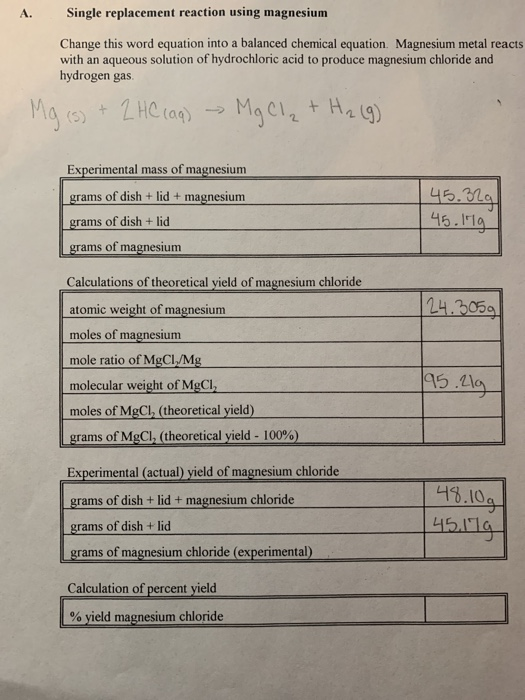 A. Single replacement reaction using magnesium
Change this word equation into a balanced chemical equation. Magnesium metal reacts
with an aqueous solution of hydrochloric acid to produce magnesium chloride and
hydrogen gas.
Mg (s) + 2HC(aq) → MgCl₂ + H₂(g)
Experimental mass of magnesium
grams of dish + lid + magnesium 45.32g
grams of dish + lid 45.17g
grams of magnesium
Calculations of theoretical yield of magnesium chloride
atomic weight of magnesium 24.305g
moles of magnesium
mole ratio of MgCl₂/Mg
molecular weight of MgCl₂ 95.21g
moles of MgCl₂ (theoretical yield)
grams of MgCl₂ (theoretical yield - 100%)
Experimental (actual) yield of magnesium chloride
grams of dish + lid + magnesium chloride 48.10g
grams of dish + lid 45.17g
grams of magnesium chloride (experimental)
Calculation of percent yield
% yield magnesium chloride